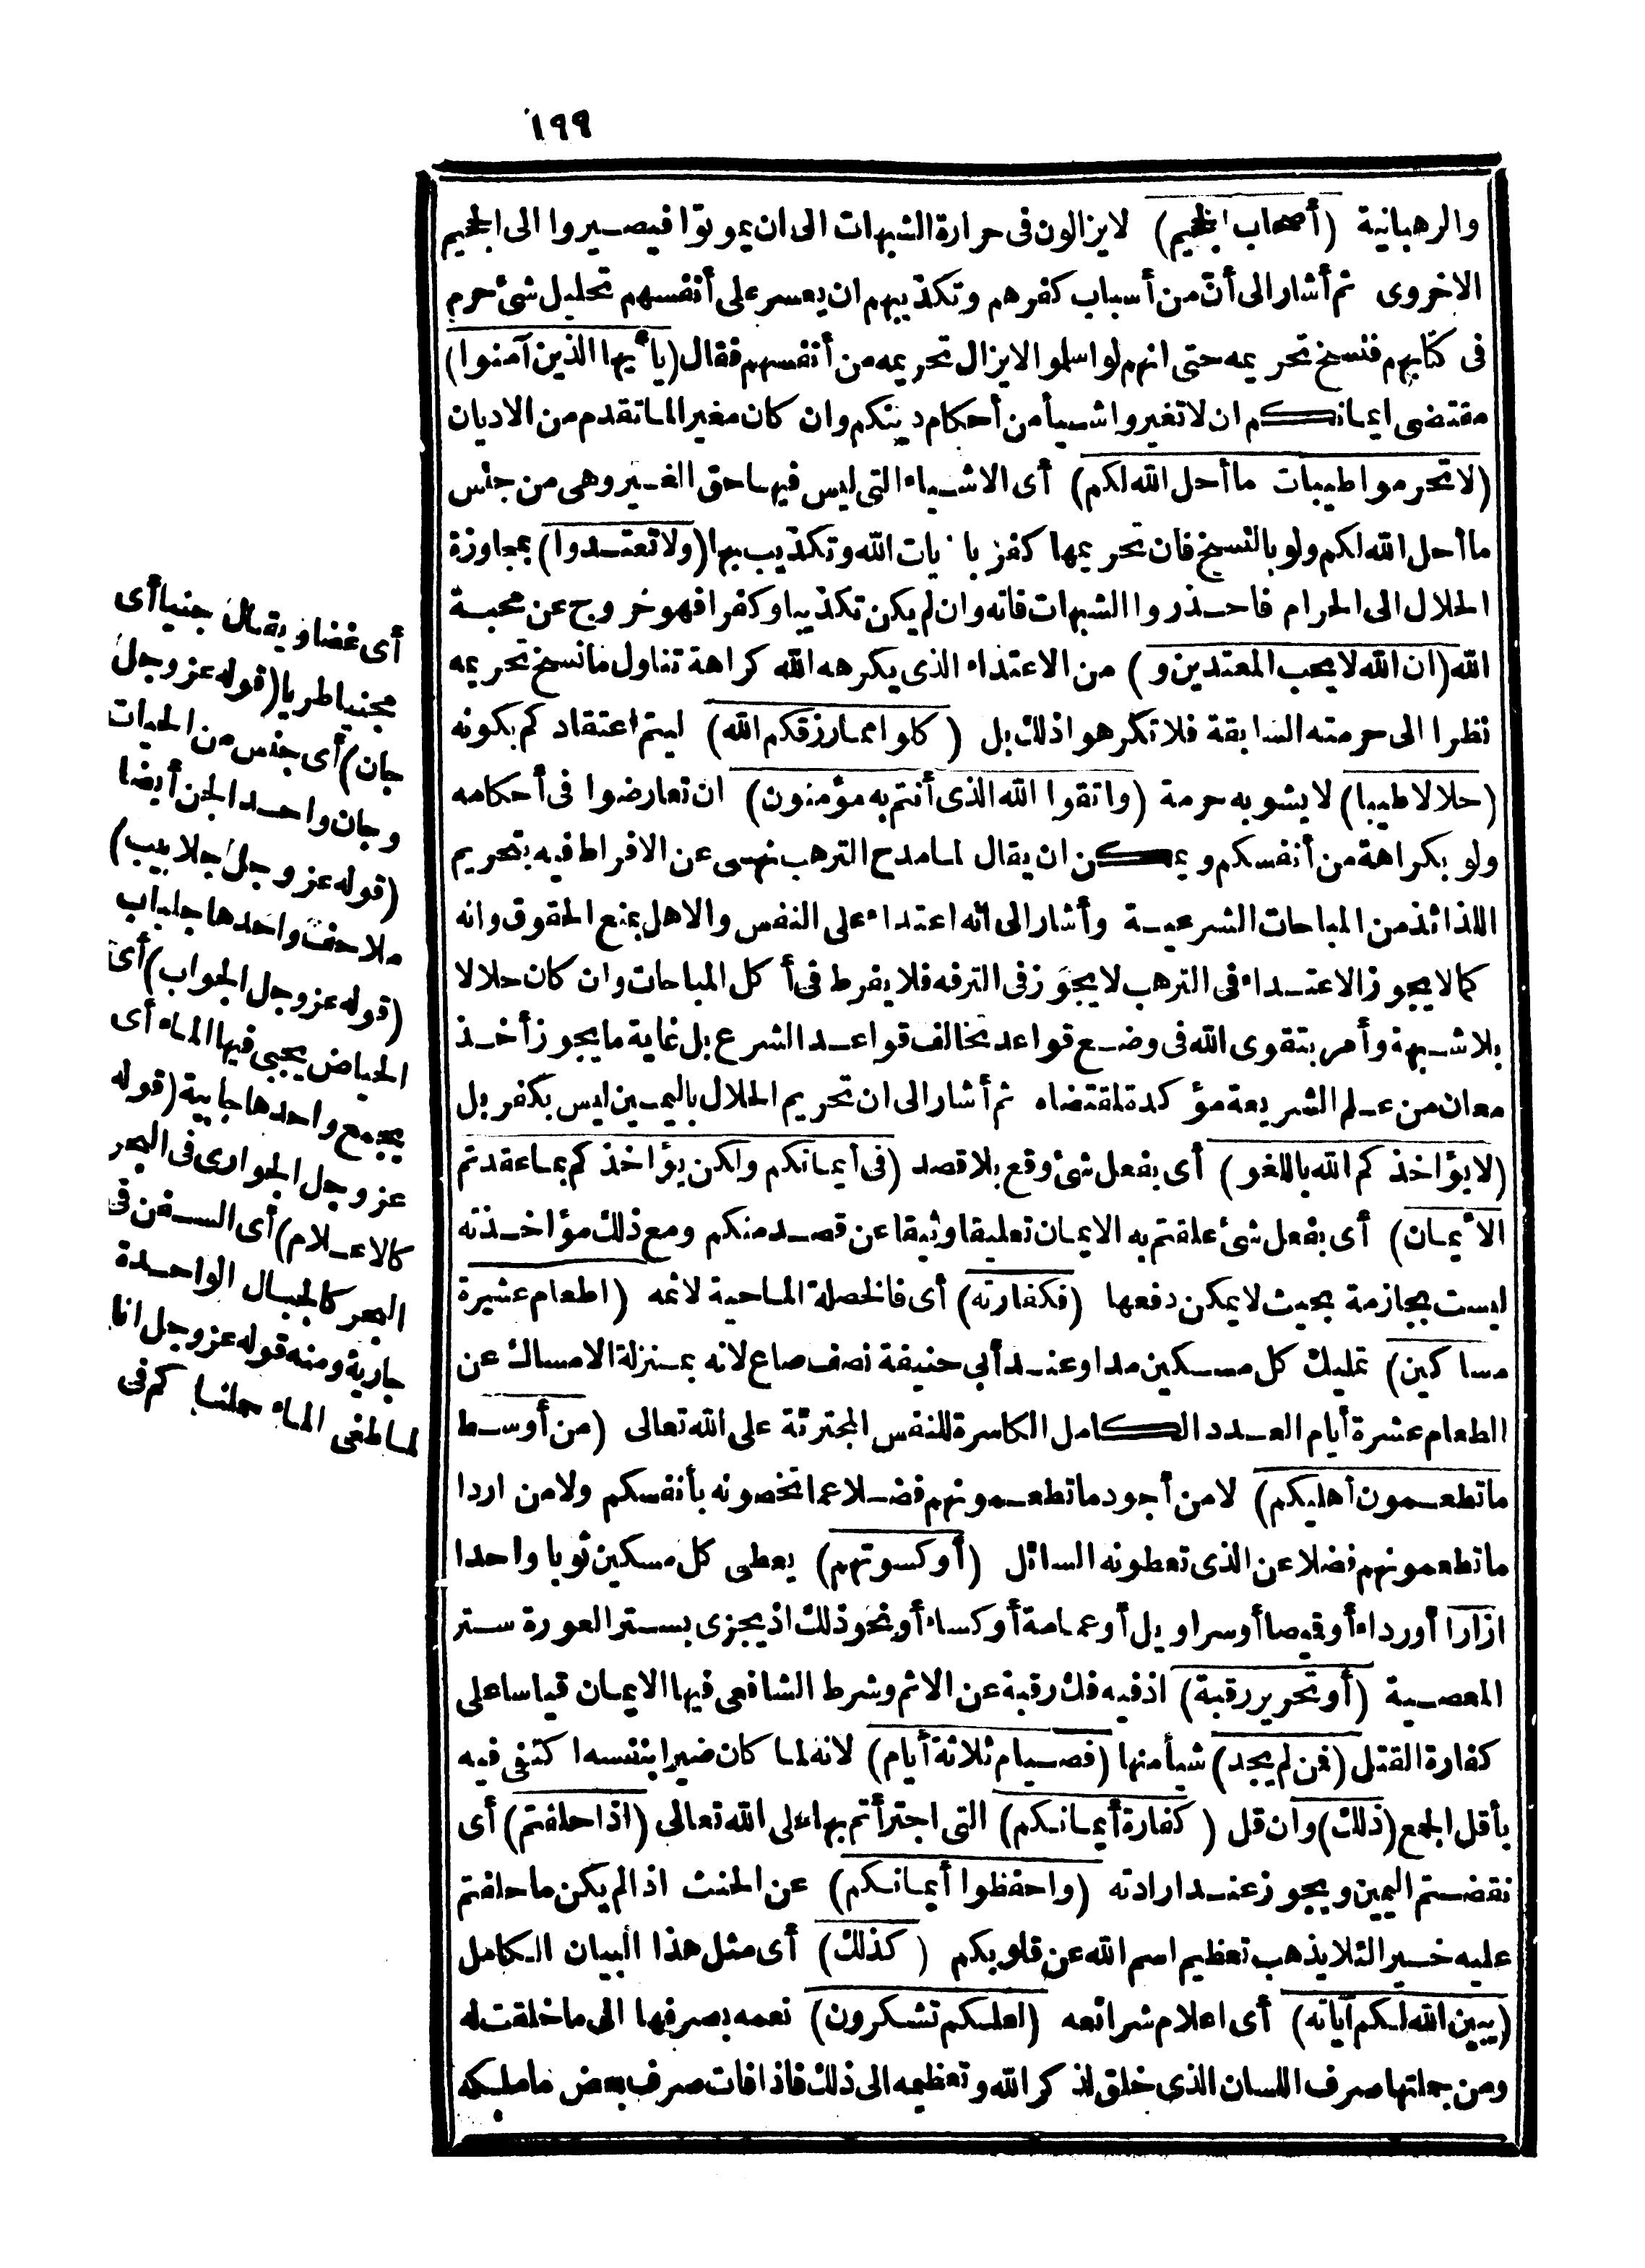 ١٩٩
والرهبانية (أصحاب الجحيم) لا يزالون فى حرارة الشبهات الى ان يموتوا فيصيروا الى الجحيم
الاخروى ثم أشار الى أنّ من أسباب كفرهم وتكذيبهم ان يعسر على أنفسهم تحليل شئ حرم
فى كتابهم فنسخ تحريمه حتى انهم لو اسلموا لا يزال تحريمه من أنفسهم فقال (يا أيها الذين آمنوا)
مقتضى ايمانكم ان لا تغيروا شيأ من أحكام دينكم وان كان مغيرا لما تقدم من الاديان
(لا تحرموا طيبات ما أحل الله لكم) أى الاشياء التى ليس فيها حق الغير وهى من جنس
ما أحل الله لكم ولو بالنسخ فان تحريمها كفر بآيات الله وتكذيب بها (ولا تعتدوا) بمجاوزة
الحلال الى الحرام فاحذروا الشبهات فانه وان لم يكن تكذيبا وكفرا فهو خروج عن محبة
الله (ان الله لا يحب المعتدين و) من الاعتداء الذى يكرهه الله كراهة تناول ما نسخ تحريمه
نظرا الى حرمته السابقة فلا تكرهوا ذلك بل (كلوا مما رزقكم الله) ليتم اعتقادكم بكونه
(حلالا طيبا) لا يشوبه حرمة (واتقوا الله الذى أنتم به مؤمنون) ان تعارضوا فى أحكامه
ولو بكراهة من أنفسكم ويمكن ان يقال لما مدح الترهب نهى عن الافراط فيه بتحريم
اللذائذ من المباحات الشرعية وأشار الى انه اعتداء على النفس والاهل بمنع الحقوق وانه
كما لا يجوز الاعتداء فى الترهب لا يجوز فى الترفه فلا يفرط فى أكل المباحات وان كان حلالا
بلا شبهة وأمر بتقوى الله فى وضع قواعد تخالف قواعد الشرع بل غاية ما يجوز أخذ
معان من علم الشريعة مؤكدة لمقتضاه ثم أشار الى ان تحريم الحلال باليمين ليس بكفر بل
(لا يؤاخذكم الله باللغو) أى بفعل شئ وقع بلا قصد (فى أيمانكم ولكن يؤاخذكم بما عقدتم
الأيمان) أى بفعل شئ علقتم به الايمان تعليقا وثيقا عن قصد منكم ومع ذلك مؤاخذته
ليست بجازمة بحيث لا يمكن دفعها (فكفارته) أى فالخصلة الماحية لاثمه (اطعام عشرة
مساكين) تمليك كل مسكين مدا وعند أبى حنيفة نصف صاع لانه بمنزلة الامساك عن
الطعام عشرة أيام العدد الكامل الكاسرة للنفس المجترئة على الله تعالى (من أوسط
ما تطعمون أهليكم) لا من أجود ما تطعمونهم فضلا عما تخصونه بأنفسكم ولا من اردا
ما تطعمونهم فضلا عن الذى تعطونه السائل (أو كسوتهم) يعطى كل مسكين ثوبا واحدا
ازارا أو رداء أو قميصا أو سراويل أو عمامة أو كساء أو نحو ذلك اذ يجزى بستر العورة ستر
المعصية (أو تحرير رقبة) اذ فيه فك رقبة عن الاثم وشرط الشافعى فيها الايمان قياسا على
كفارة القتل (فمن لم يجد) شيأ منها (فصيام ثلاثة أيام) لانه لما كان ضيرا بنفسه اكتفى فيه
بأقل الجمع (ذلك) وان قل (كفارة أيمانكم) التى اجترأتم بها على الله تعالى (اذا حلفتم) أى
نقضتم اليمين ويجوز عند ارادته (واحفظوا أيمانكم) عن الحنث اذا لم يكن ما حلفتم
عليه خيرا لئلا يذهب تعظيم اسم الله عن قلوبكم (كذلك) أى مثل هذا البيان الكامل
(يبين الله لكم آياته) أى اعلام شرائعه (لعلكم تشكرون) نعمه بصرفها الى ما خلقت له
ومن جملتها صرف اللسان الذى خلق لذكر الله وتعظيمه الى ذلك فاذا فات صرف بعض ما ملكه
أى غضا ويقال جنيا أى
مجنيا طريا (قوله عز وجل
جان) أى جنس من الحيات
وجان واحد الجن أيضا
(قوله عز وجل جلابيب)
ملاحف واحدها جلباب
(قوله عز وجل الجواب) أى
الحياض يجبى فيها الماء أى
يجمع واحدها جابية (قوله
عز وجل الجوارى فى البحر
كالاعلام) أى السفن فى
البحر كالجبال الواحدة
جارية ومنه قوله عز وجل انا
لما طغى الماء حملناكم فى